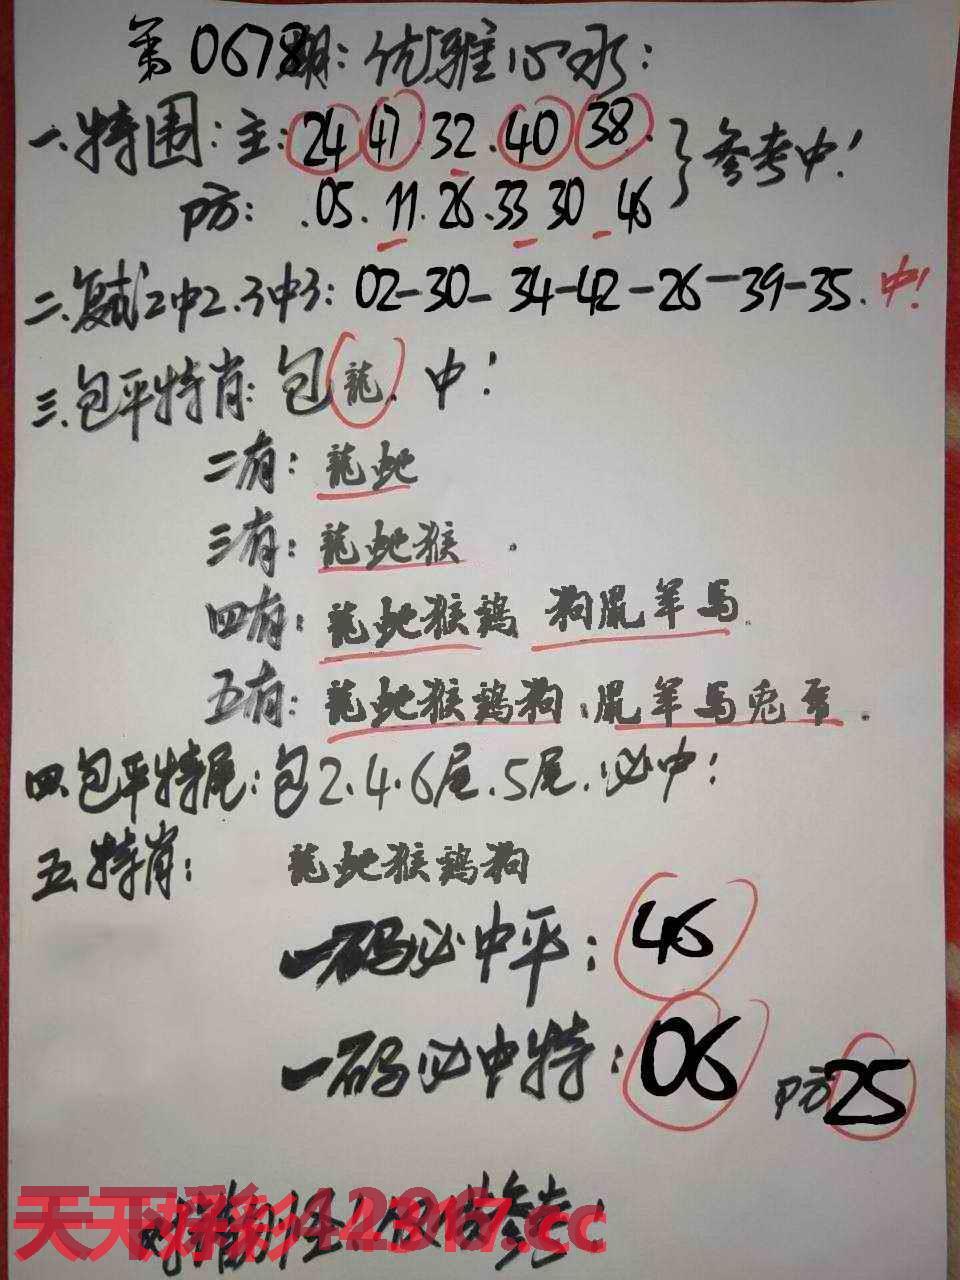 第0678期:优雅心水:
一.特围:主:24 47.32.40 38.
参考中!
防:.05.11.26.33 30 46
二.复试2中2.3中3:02-30-34-42-26-39-35.中!
三.包平特肖:包龍.中!
二有:龍虵
三有:龍虵猴.
四有:龍虵猴鷄 狗鼠羊馬.
五有:龍虵猴鷄狗.鼠羊马兎
四.包平特尾:包2.4.6尾.5尾.必中:
五.特肖:龍虵猴鷄狗
一码必中平:46
一码必中特:06 防25
天天好彩 42917.cc
参